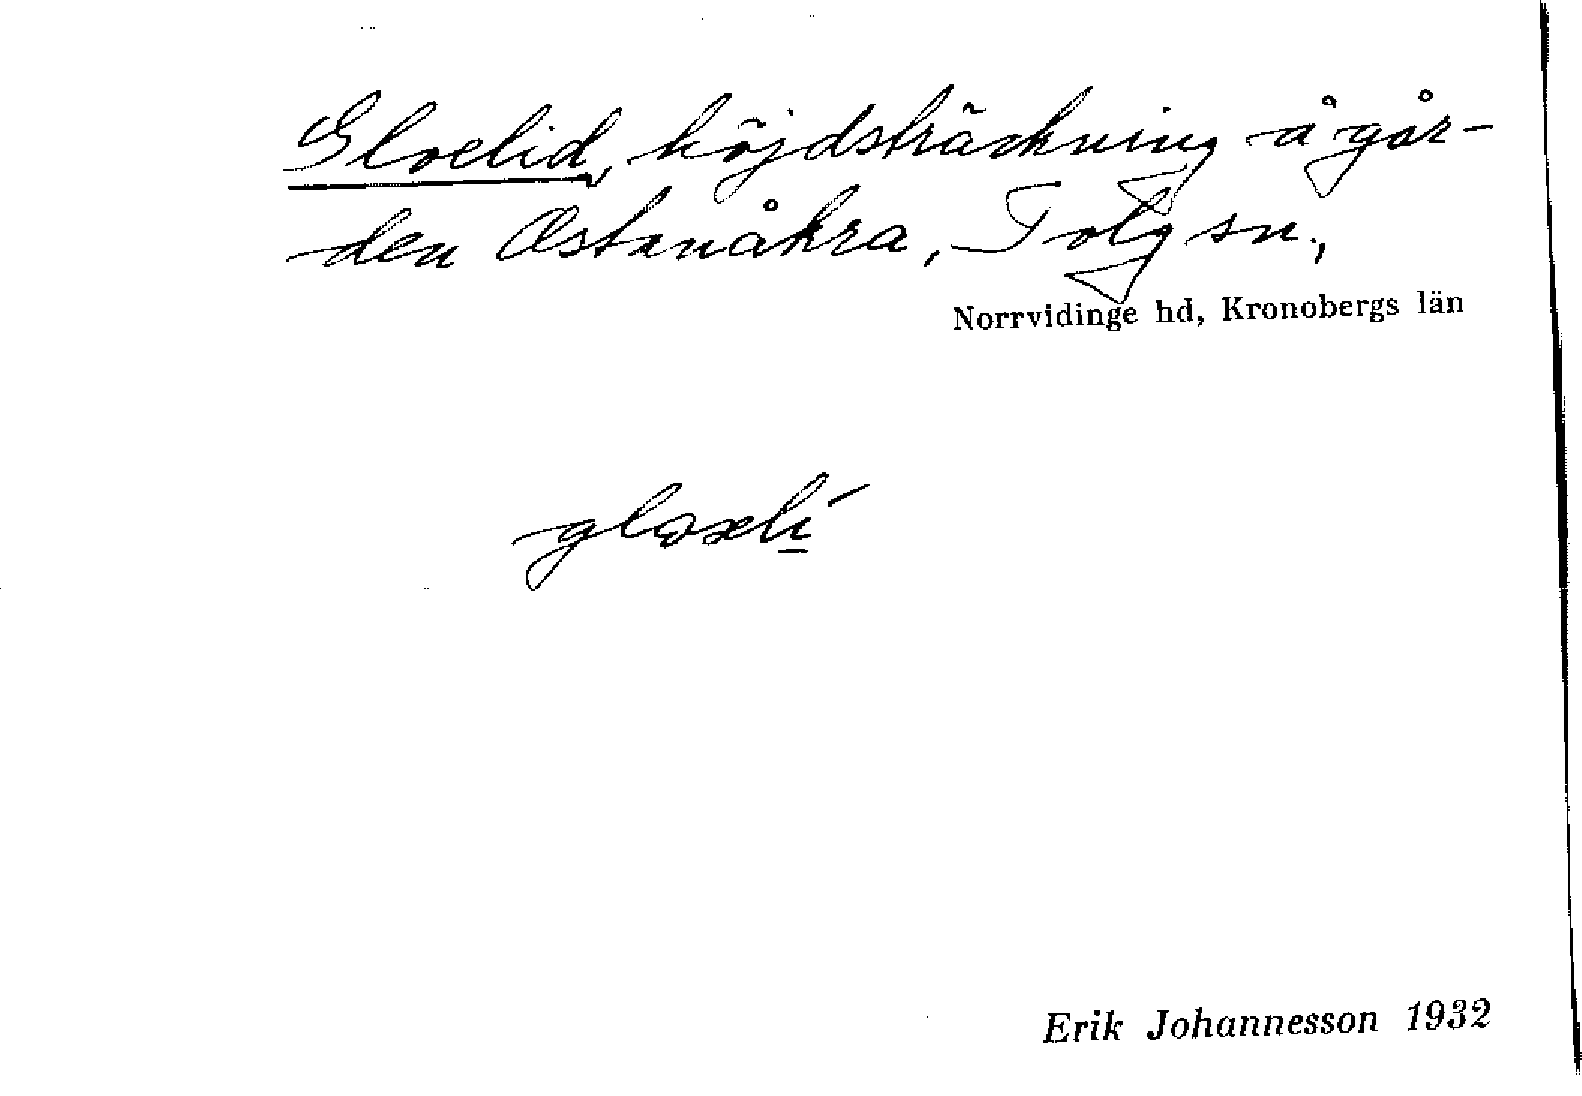 Gloelid, höjdsträckning å går-
den Östanåkra, Tolg sn.,
Norrvidinge hd, Kronobergs län
Erik Johannesson 1932